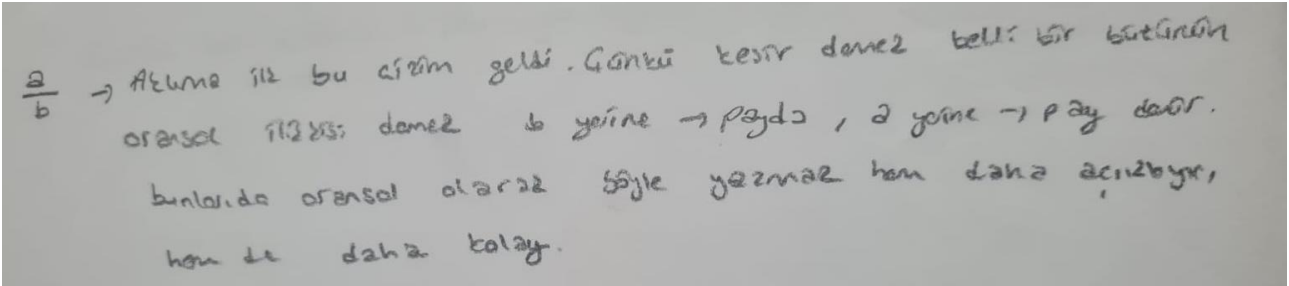 a/b → Aklıma ilk bu çizim geldi. Çünkü kesir demek belli bir bütünün
oransal ilişkisi demek b yerine → payda, a yerine → pay denir.
bunlarıda oransal olarak böyle yazmak hem daha
hem de daha kolay.